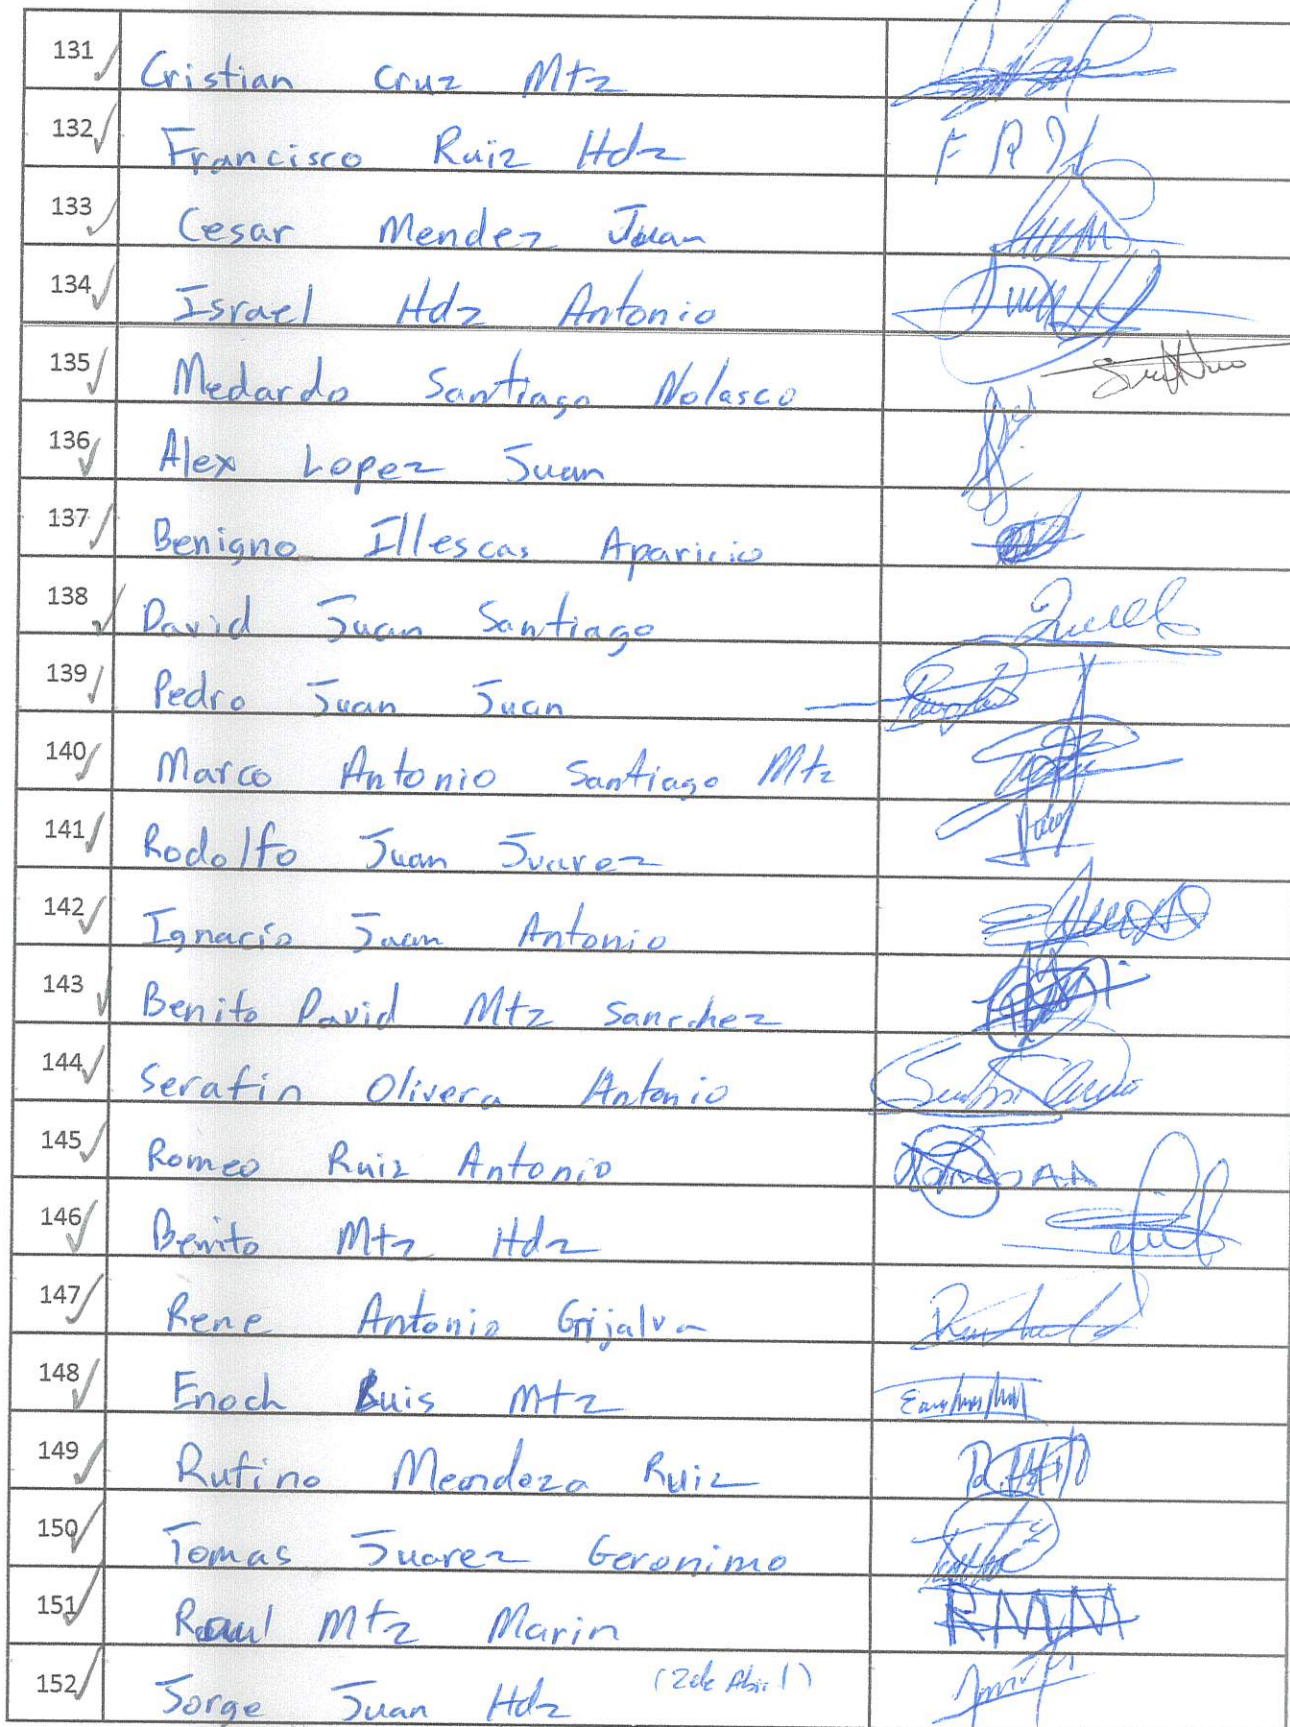 131 Cristian Cruz Mtz
132 Francisco Ruiz Hdz F R H
133 Cesar Mendez Juan
134 Israel Hdz Antonio
135 Medardo Santiago Nolasco
136 Alex Lopez Juan
137 Benigno Illescas Aparicio
138 David Juan Santiago
139 Pedro Juan Juan
140 Marco Antonio Santiago Mtz
141 Rodolfo Juan Juarez
142 Ignacio Juan Antonio
143 Benito David Mtz Sanchez
144 Serafin Olivera Antonio
145 Romeo Ruiz Antonio
146 Benito Mtz Hdz
147 Rene Antonio Grijalva
148 Enoch Luis Mtz
149 Rufino Mendoza Ruiz
150 Tomas Juarez Geronimo
151 Raul Mtz Marin RMM
152 Jorge Juan Hdz (2 de Abril)